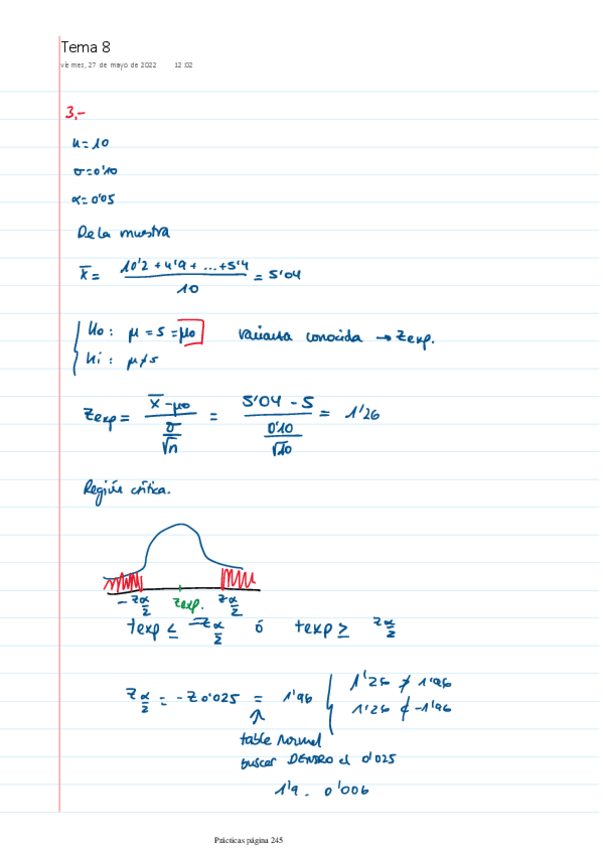 Tema 8
viernes, 27 de mayo de 2022 12:02
3.-
n=10
σ=0'10
α=0'05
De la muestra
x̄ = (10'2 + 4'9 + ... + 5'4) / 10 = 5'04
H0: μ = 5 = μ0 varianza conocida → Zexp.
Hi: μ ≠ 5
Zexp = (x̄ - μ0) / (σ/√n) = (5'04 - 5) / (0'10/√10) = 1'26
Región crítica.
-Zα/2 Zexp. Zα/2
texp ≤ -Zα/2 ó texp ≥ Zα/2
Zα/2 = -Z0'025 = 1'96 1'26 ≱ 1'96
1'26 ≰ -1'96
tabla normal
buscar DENTRO el 0'025
1'9 . 0'006
Prácticas página 245